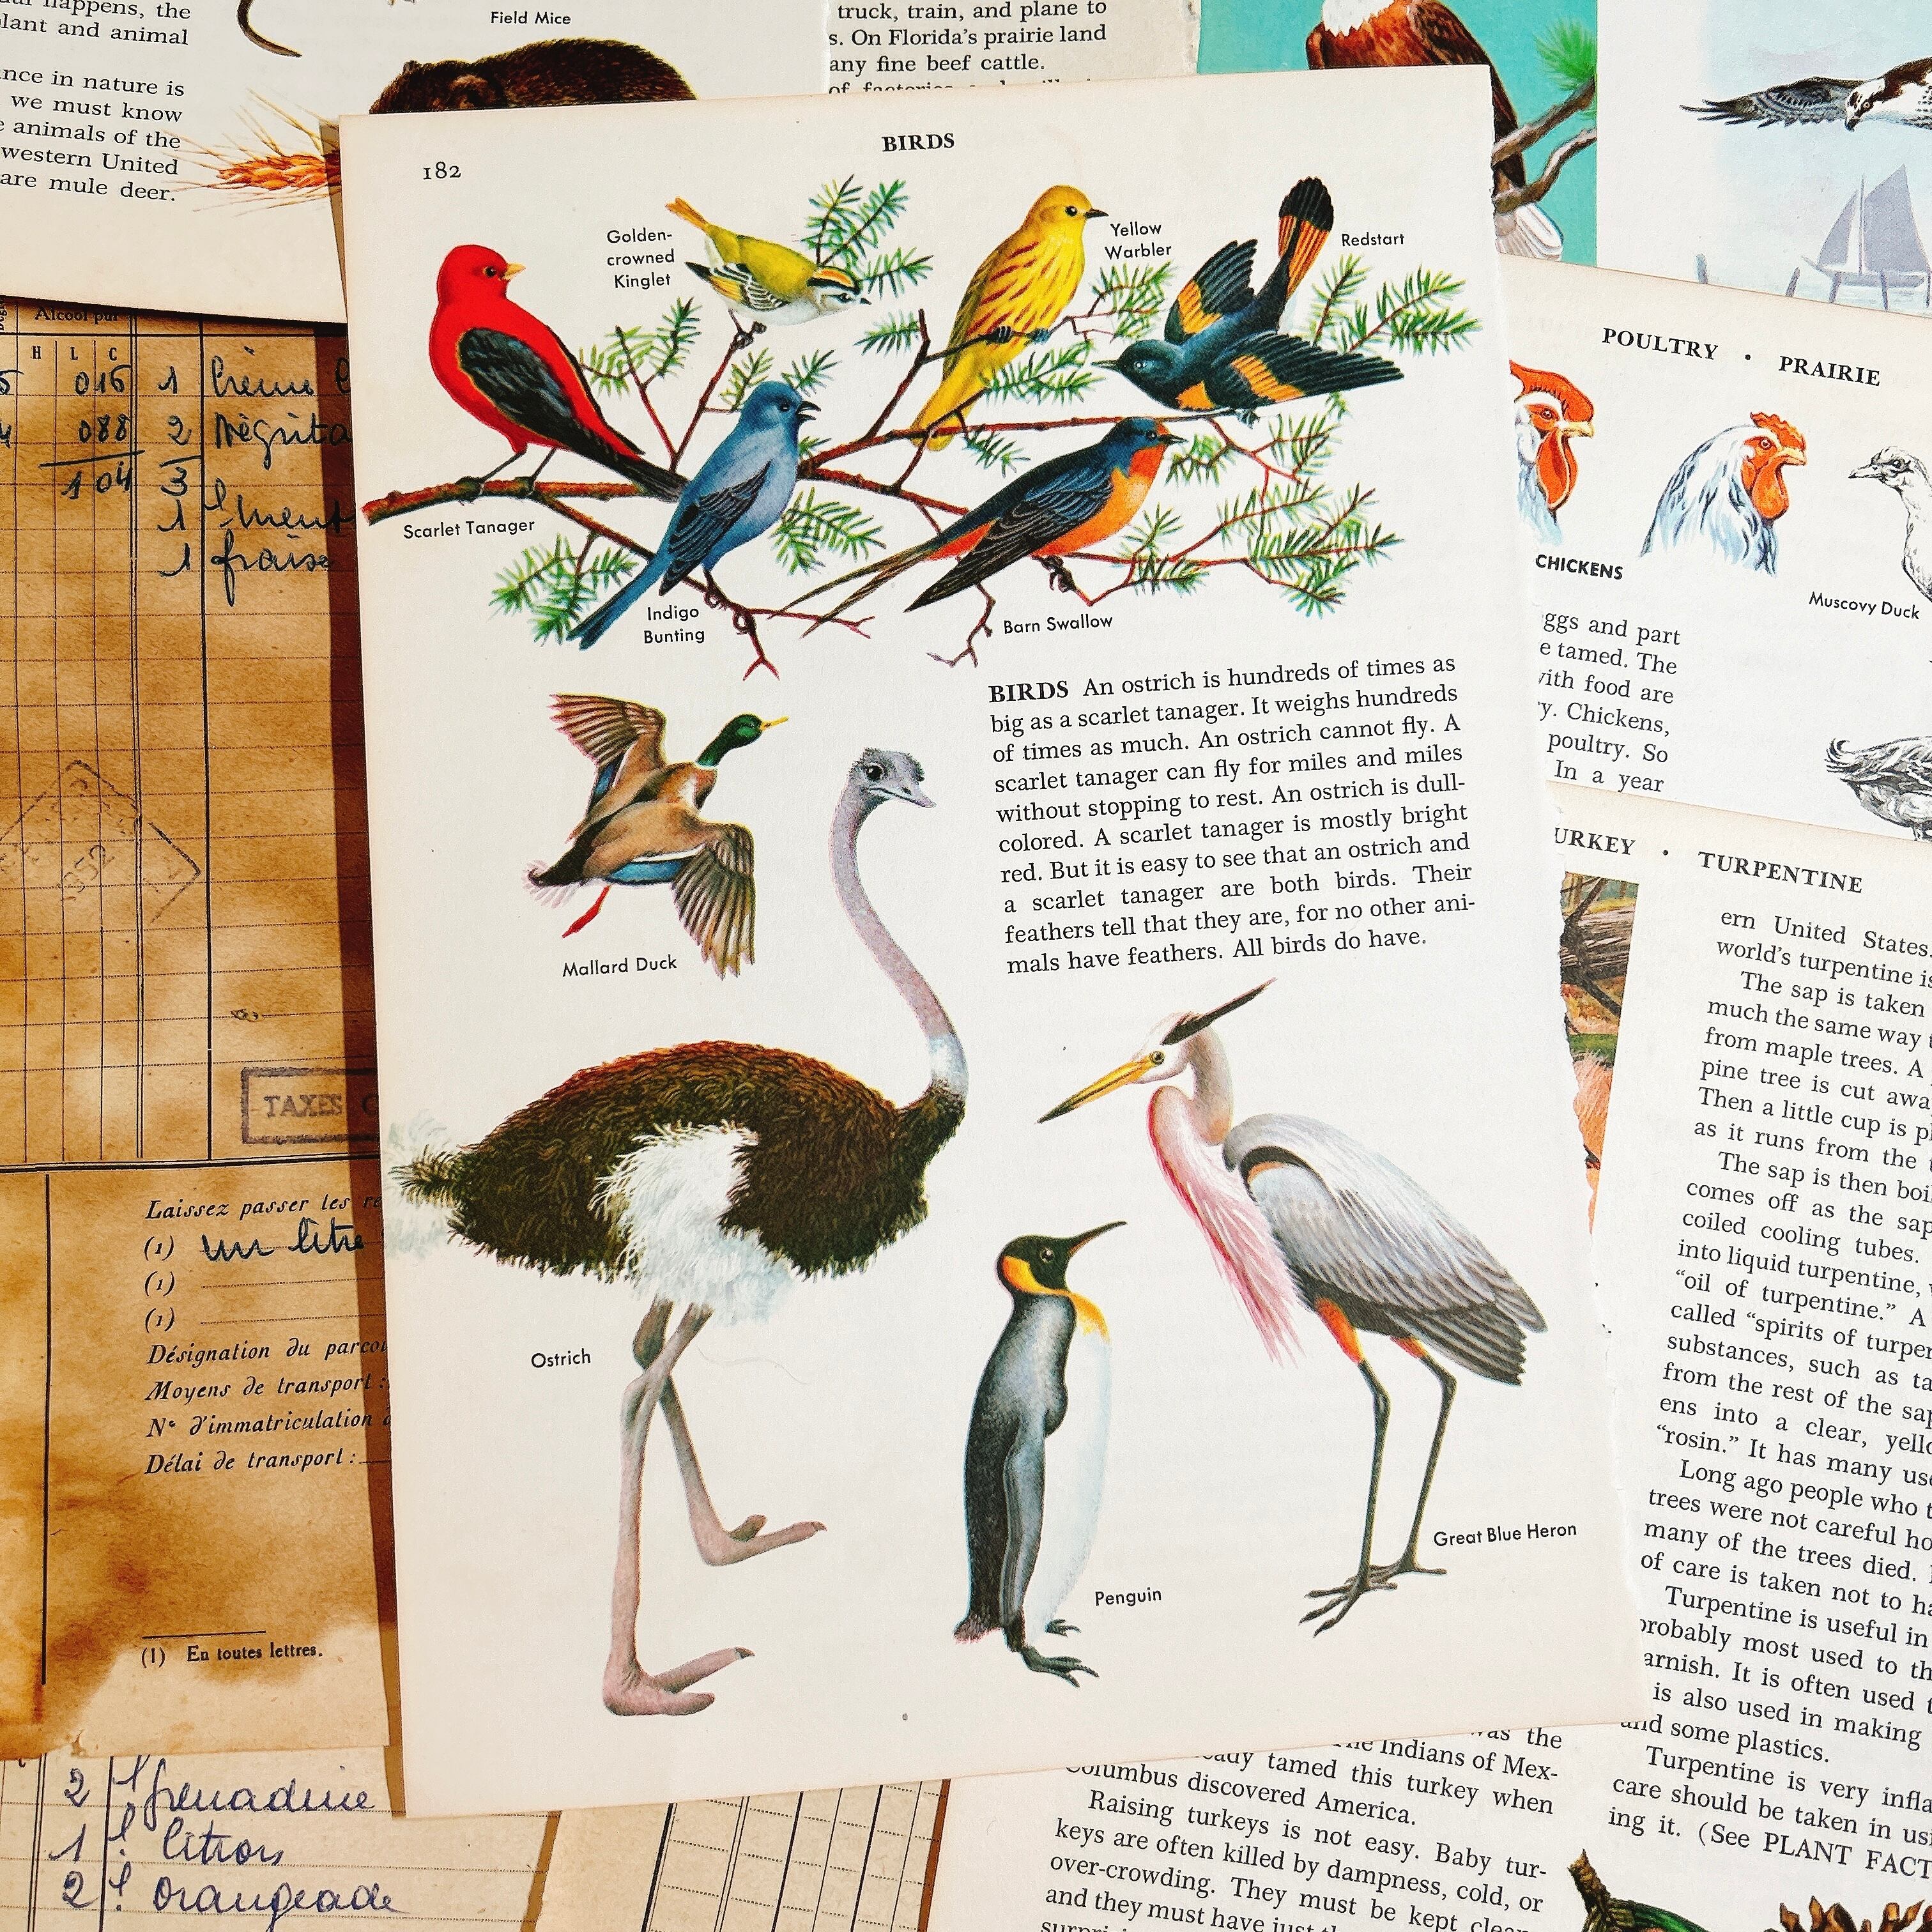 182
BIRDS
Golden-
crowned
Kinglet
Yellow
Warbler
Redstart
Scarlet Tanager
Indigo
Bunting
Barn Swallow
BIRDS An ostrich is hundreds of times as
big as a scarlet tanager. It weighs hundreds
of times as much. An ostrich cannot fly. A
scarlet tanager can fly for miles and miles
without stopping to rest. An ostrich is dull-
colored. A scarlet tanager is mostly bright
red. But it is easy to see that an ostrich and
a scarlet tanager are both birds. Their
feathers tell that they are, for no other ani-
mals have feathers. All birds do have.
Mallard Duck
Ostrich
Penguin
Great Blue Heron
happens, the
plant and animal
in nature is
we must know
animals of the
western United
are mule deer.
Field Mice
truck, train, and plane to
s. On Florida's prairie land
any fine beef cattle.
of factories
POULTRY · PRAIRIE
CHICKENS
Muscovy Duck
and part
e tamed. The
with food are
Chickens,
poultry. So
In a year
TURPENTINE
ern United States.
world's turpentine is
The sap is taken
much the same way
from maple trees. A
pine tree is cut
Then a little cup is
as it runs from the
The sap is then
comes off as the sap
coiled cooling tubes.
into liquid turpentine,
"oil of turpentine." A
called "spirits of
substances, such as
from the rest of the
ens into a clear,
"rosin." It has many
Long ago people who
trees were not careful
many of the trees died.
of care is taken not to
Turpentine is useful in
probably most used to
It is often used
is also used in making
and some plastics.
Turpentine is very
care should be taken in
ing it. (See PLANT
was the
Indians of Mex-
tamed this turkey when
Columbus discovered America.
Raising turkeys is not easy. Baby tur-
keys are often killed by dampness, cold, or
over-crowding. They must be kept clean,
and they must have just
Alcool pur
H L C
016 1
088 2
104 3
1
1 fraise
TAXES
Laissez passer les
(1) un litre
(1)
(1)
Désignation du
Moyens de transport :
N° d'immatriculation
Délai de transport :
(1) En toutes lettres.
2 grenadine
1 citron
2 orangeade